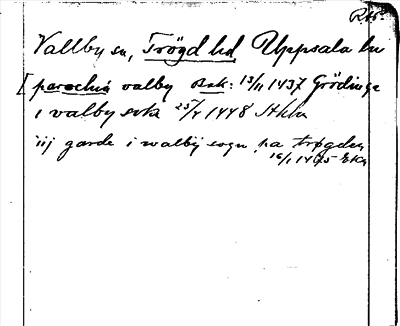 Vallby sn, Trögd hd Uppsala ln
[parochia valby Bak: 13/11 1437 Grödinge
i valby sokn 25/4 1448 Sthlm
iij garde i walby sogn pa trøgden
16/1 1475